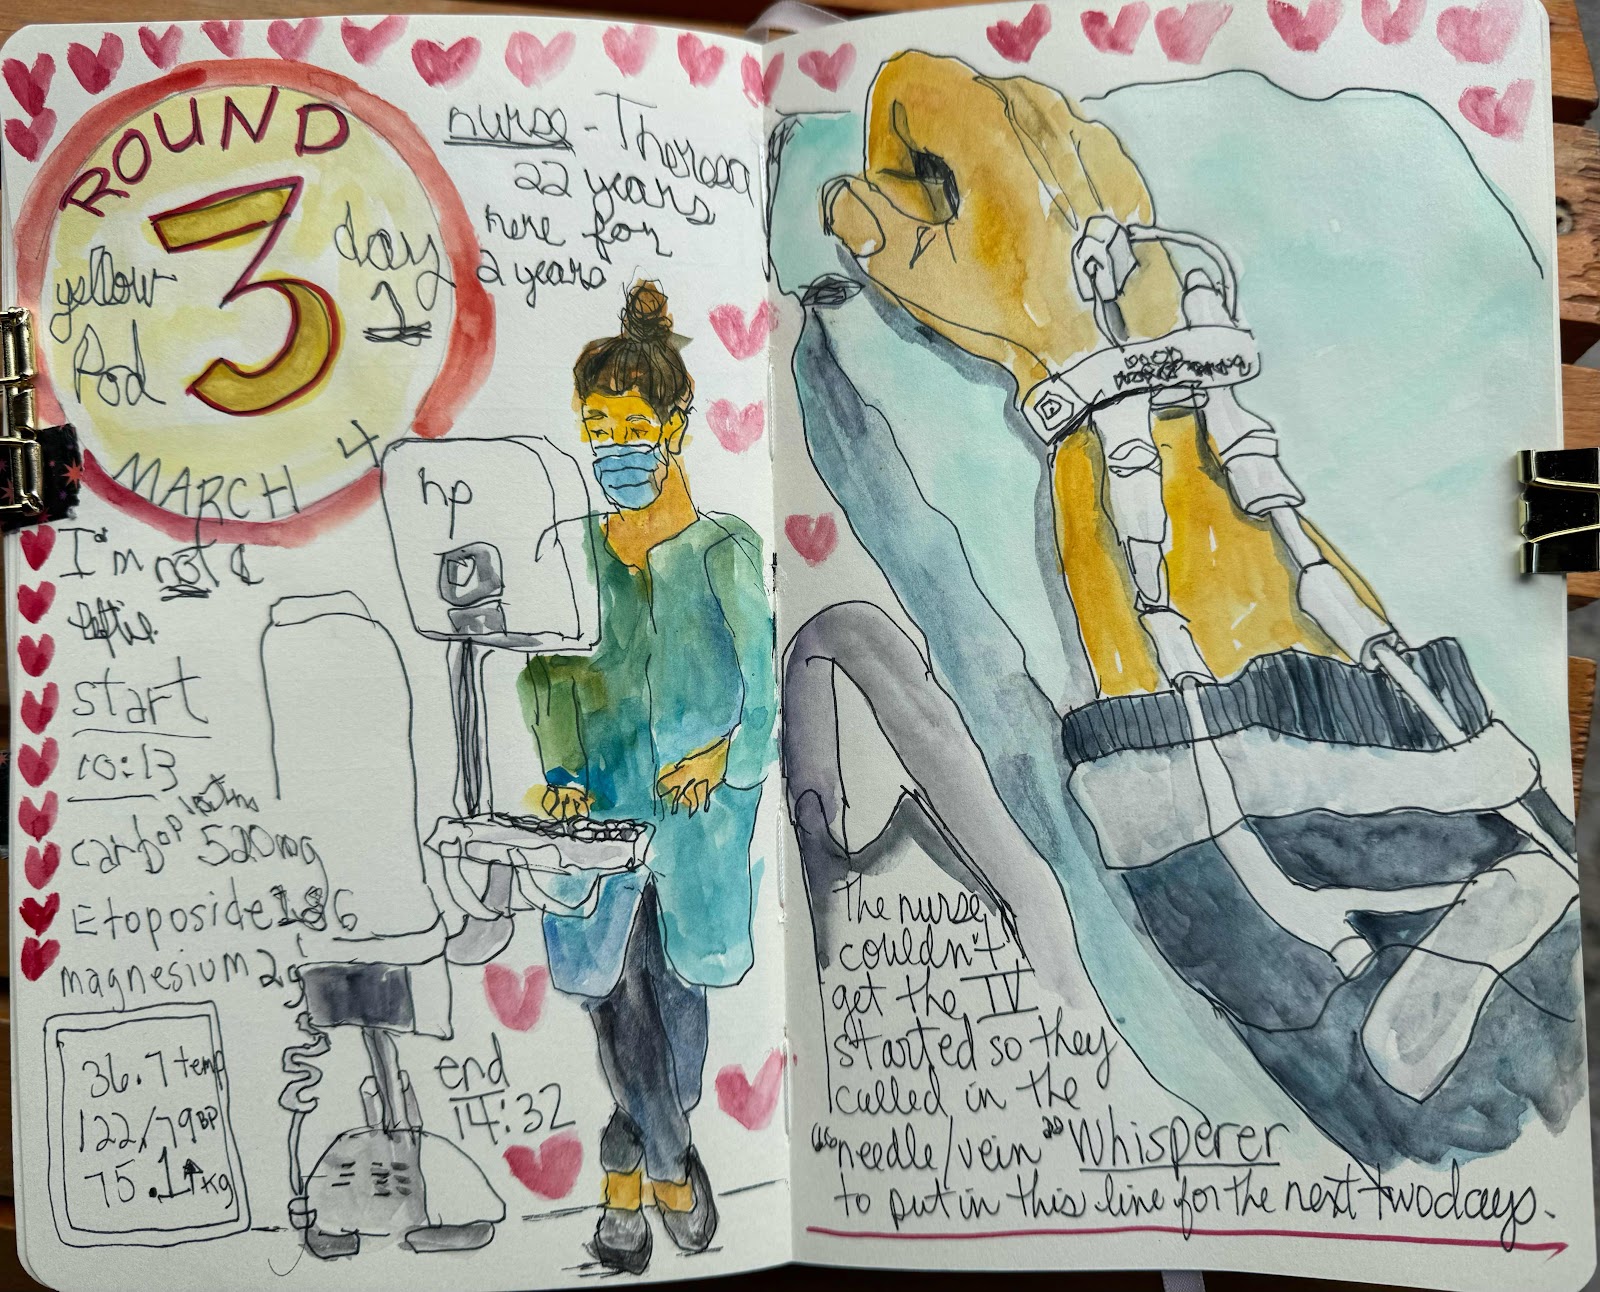 ROUND
3
day
1
yellow
Pod
MARCH 4
nurse - Theresa
22 years
here for
2 years
hp
I'm not a
leftie.
start
10:13
carbop
520mg
Etoposide 186
magnesium 2g
36.7 temp
122/79 BP
75.1 kg
end
14:32
The nurse
couldn't
get the IV
started so they
called in the
"needle/vein" Whisperer
to put in this line for the next two days.